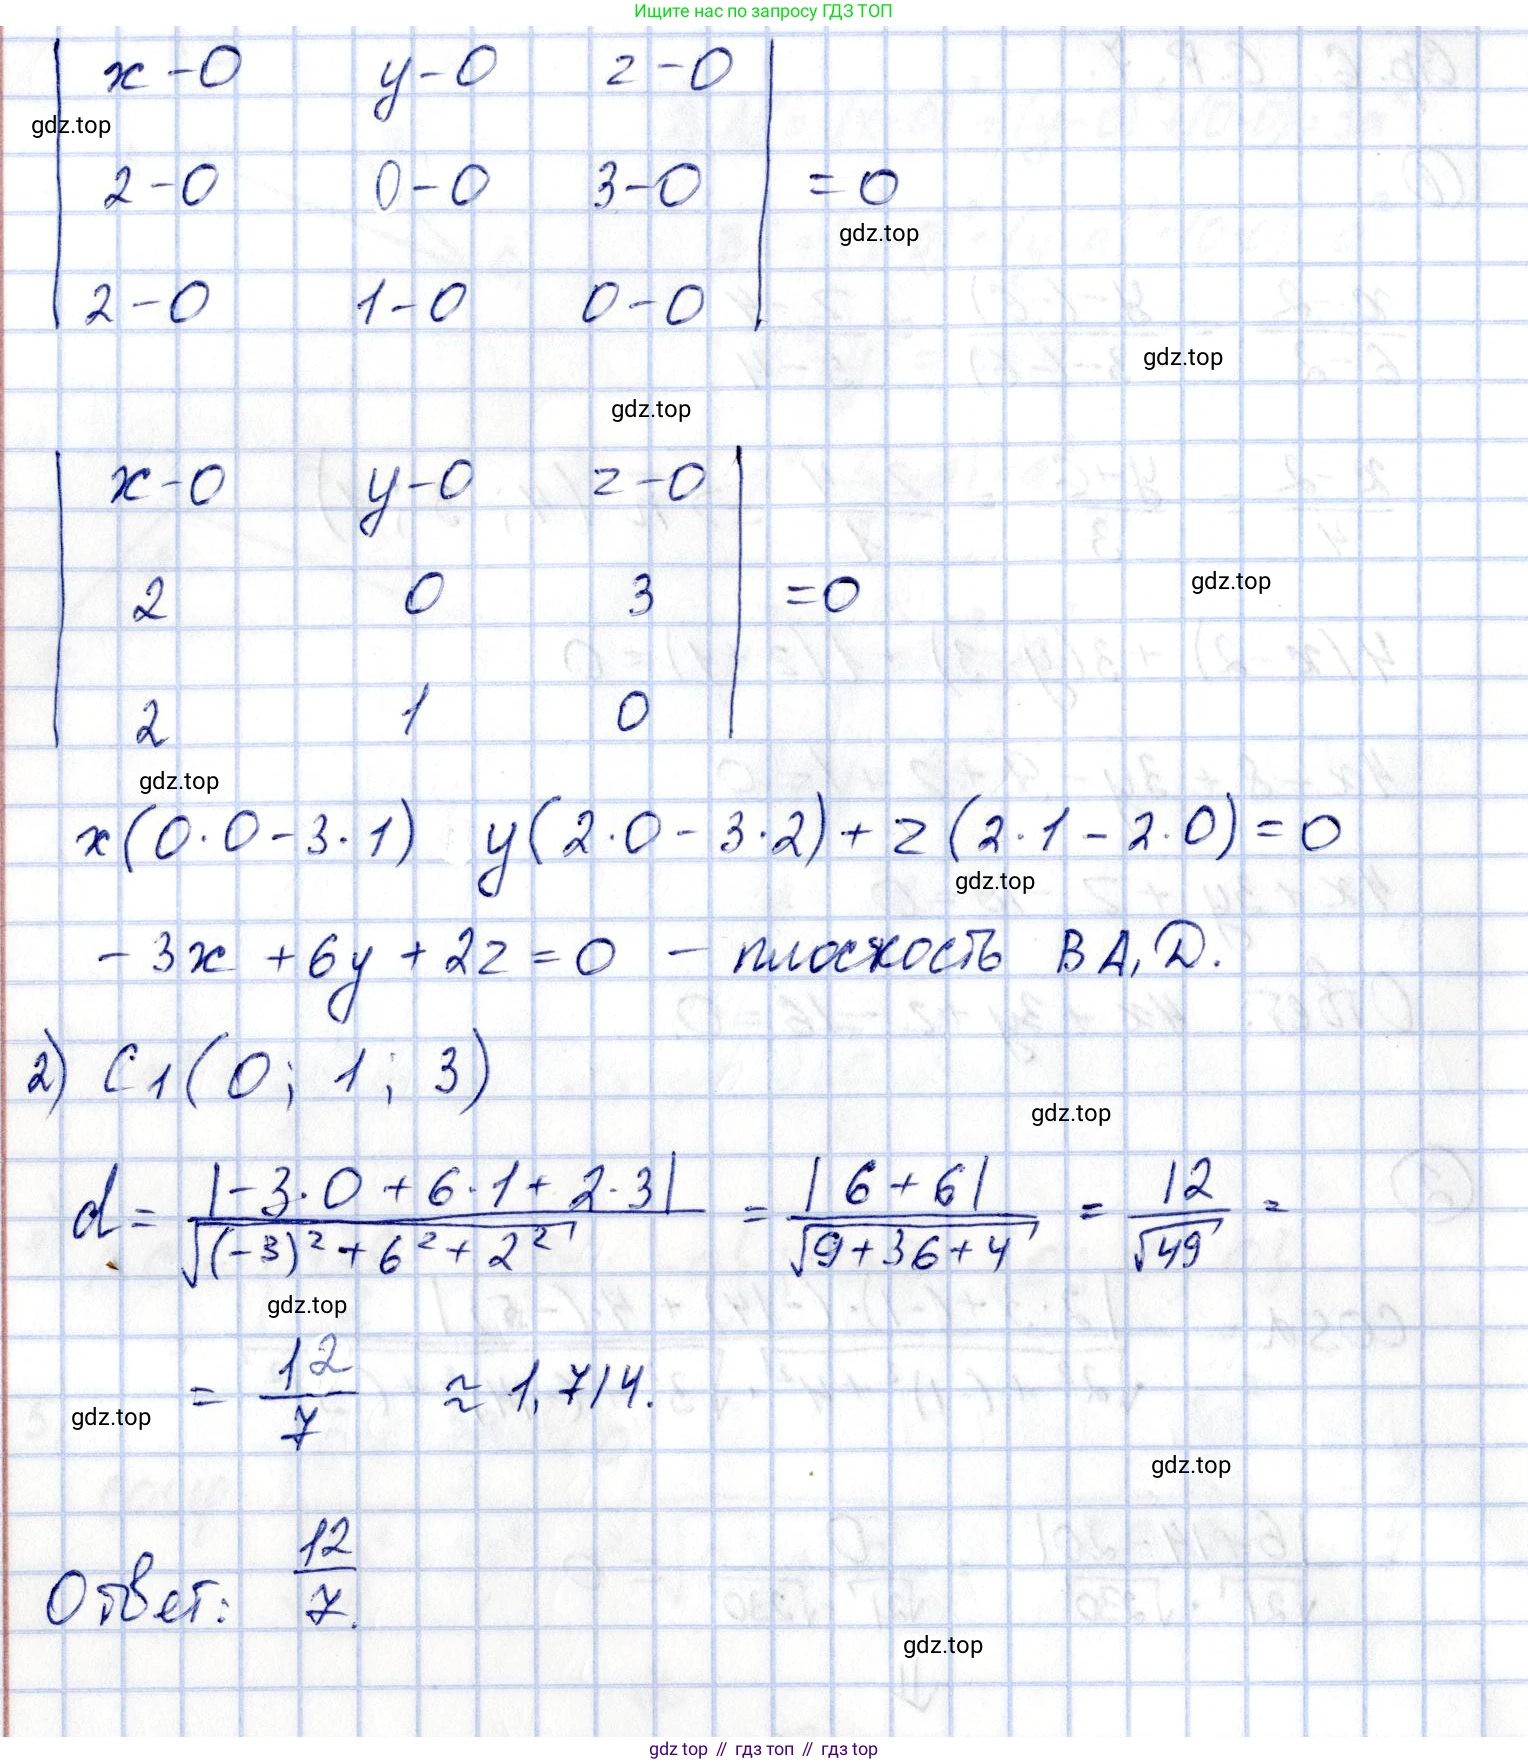 Ищите нас по запросу ГДЗ ТОП
| x-0 y-0 z-0 |
gdz.top
| 2-0 0-0 3-0 | = 0
gdz.top
| 2-0 1-0 0-0 |
gdz.top
gdz.top
| x-0 y-0 z-0 |
| 2 0 3 | = 0
gdz.top
| 2 1 0 |
gdz.top
x(0·0-3·1) y(2·0-3·2)+z(2·1-2·0)=0
gdz.top
-3x+6y+2z=0 - плоскость BA₁D.
2) C1(0; 1; 3)
gdz.top
d = |-3·0+6·1+2·3| / √((-3)²+6²+2²) = |6+6| / √(9+36+4) = 12/√49 =
gdz.top
= 12/7 ≈ 1,714.
gdz.top
gdz.top
Ответ: 12/7.
gdz.top
gdz top // гдз топ // гдз top